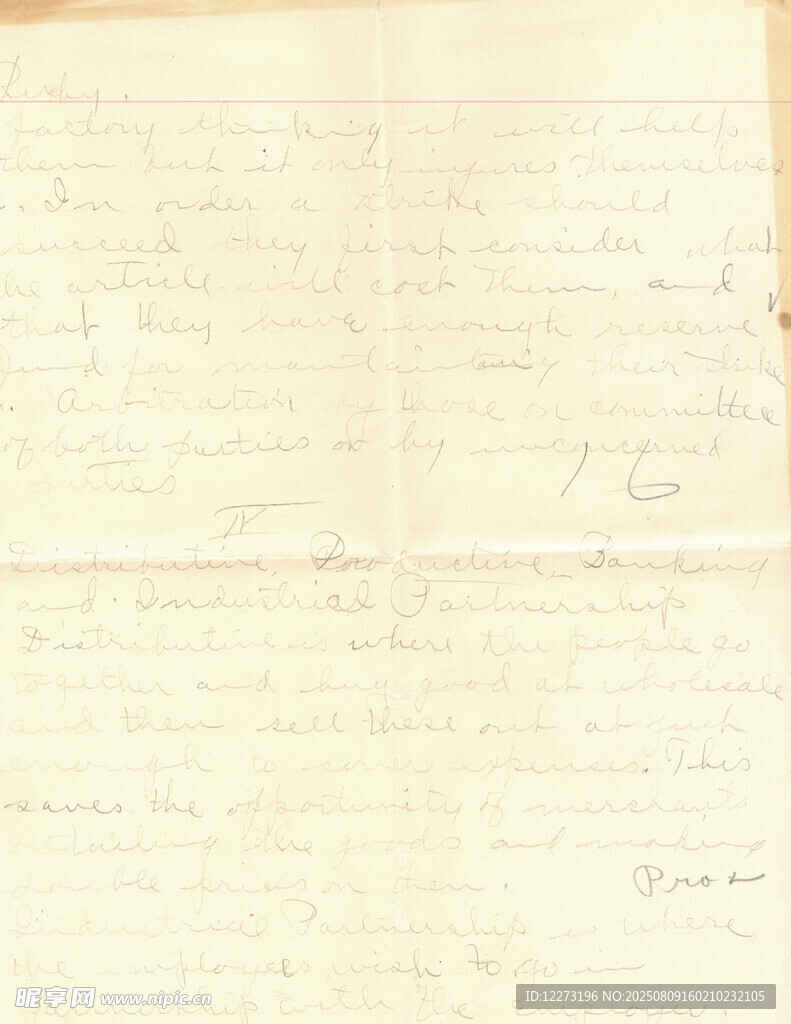 factory thinking it will help
them but it only injures themselves
. In order a strike should
succeed they first consider what
he article will cost them, and
that they have enough reserve
fund for maintaining their strike
. Arbitration by those on committee
of both parties or by unconcerned
parties
IV
Distributive, Productive, Banking
and Industrial Partnership
Distributive is where the people go
together and buy good at wholesale
and then sell these out at just
enough to cover expenses. This
saves the opportunity of merchants
retailing the goods and making
double prices on them.
Industrial Partnership is where
the employees wish to go in
partnership with the employer.
昵享网 www.nipic.cn
ID:12273196 NO:20250809160210232105